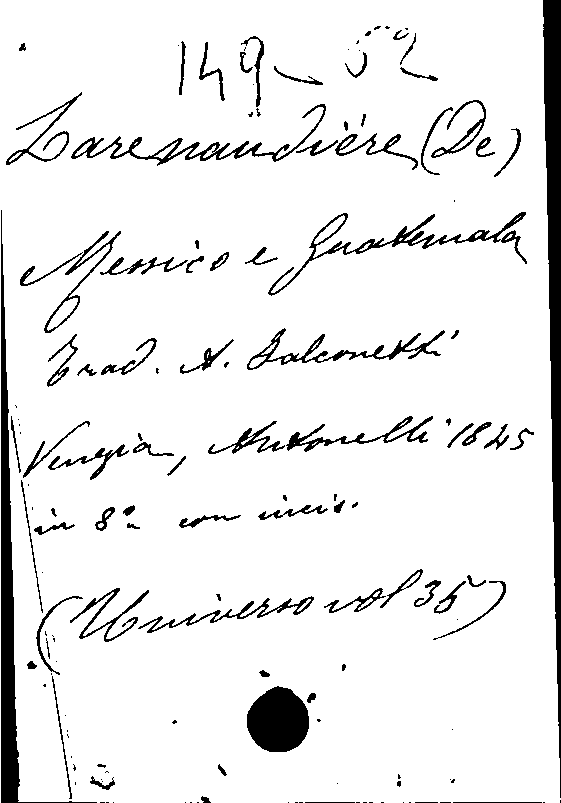 149-52
Larenaudiére (De)
Messico e Guatemala
Trad. A. Falconetti
Venezia, Antonelli 1845
in 8° con incis.
(Universo vol 35)